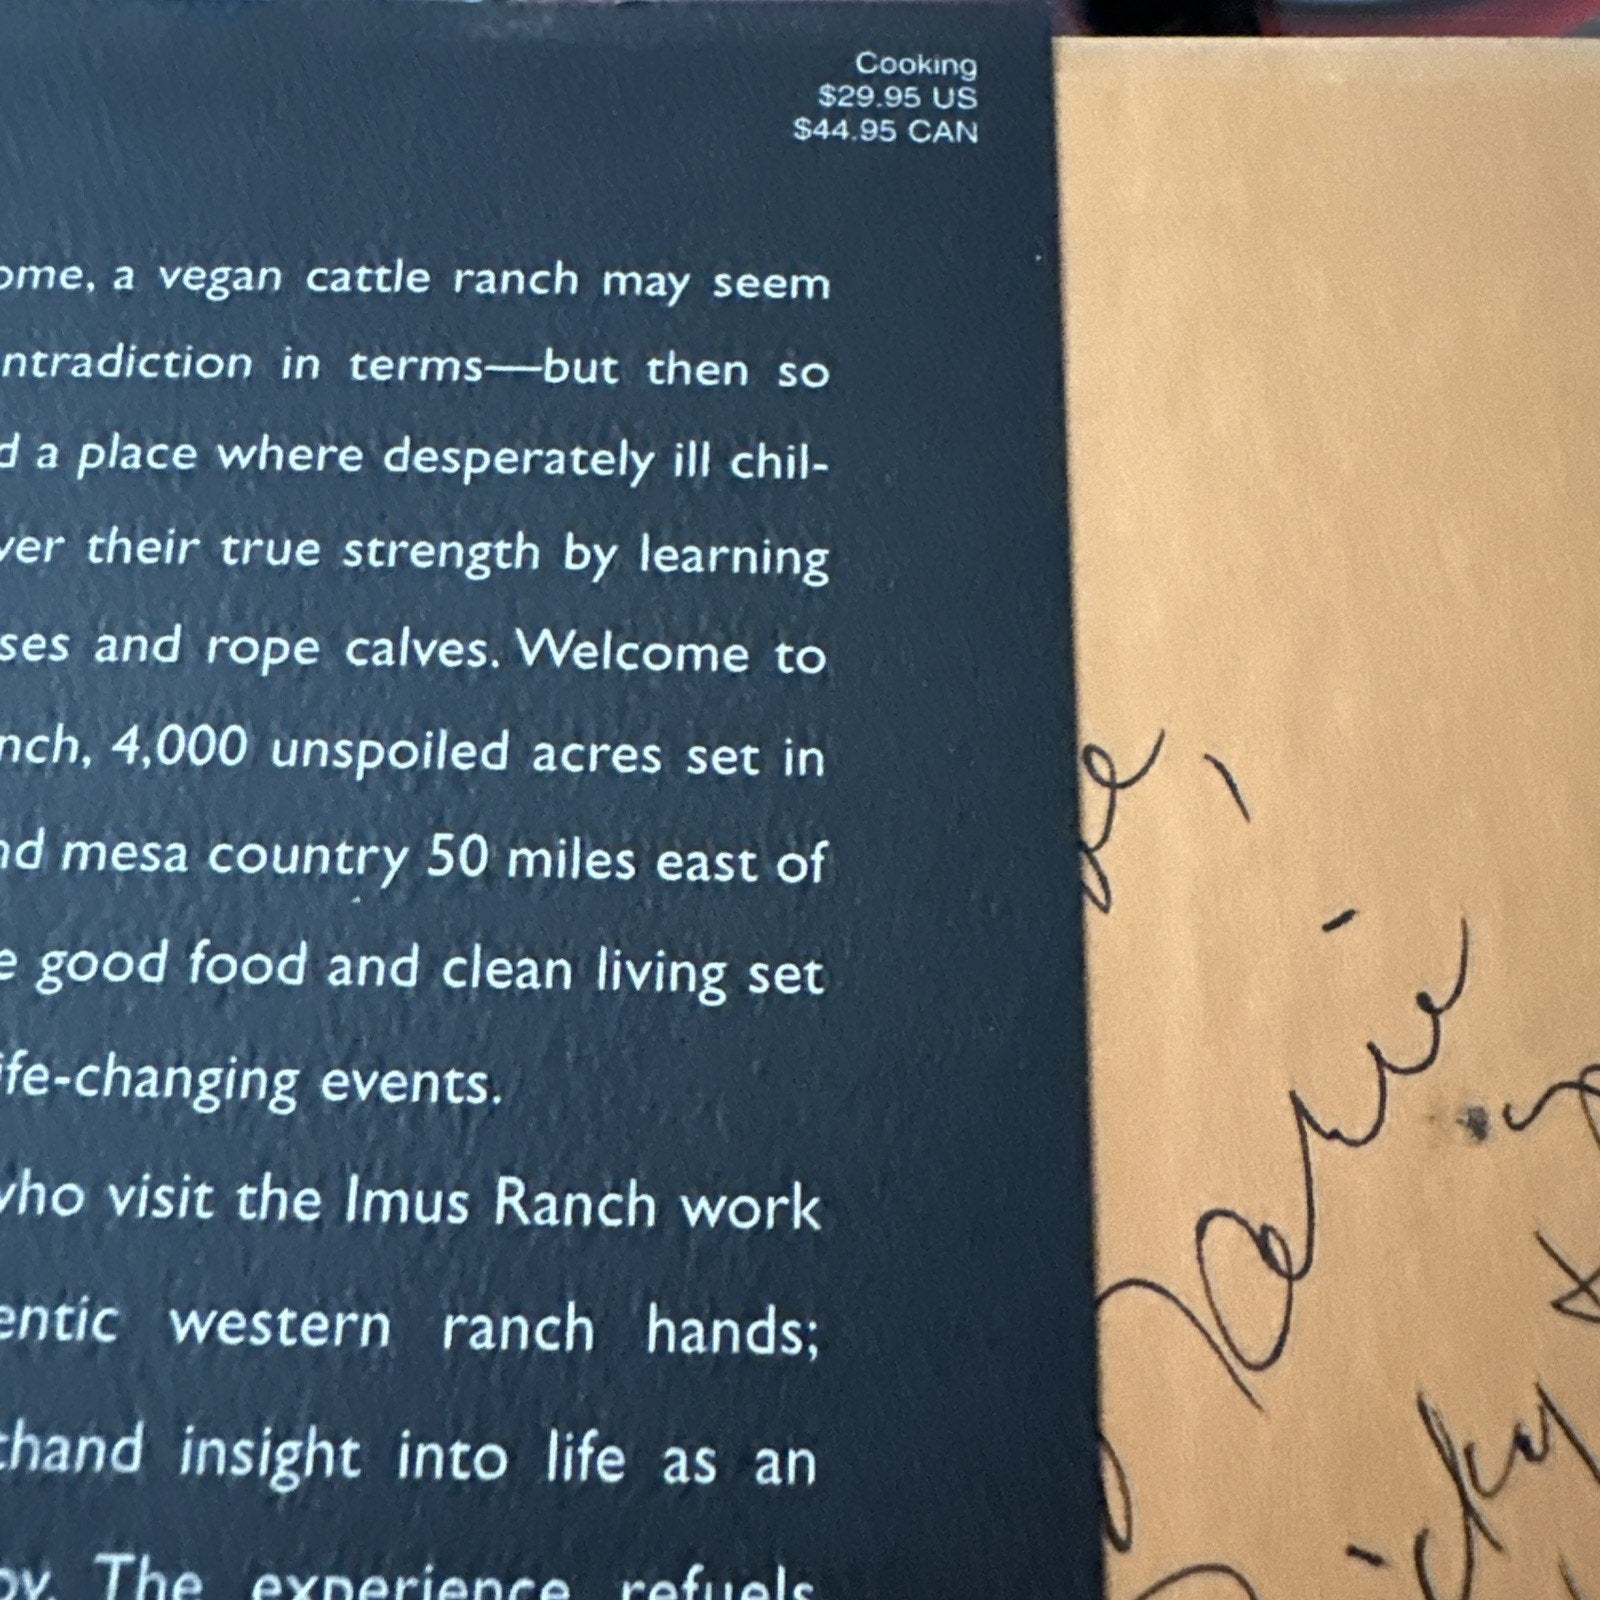 Cooking
$29.95 US
$44.95 CAN
ome, a vegan cattle ranch may seem
ntradiction in terms—but then so
d a place where desperately ill chil-
ver their true strength by learning
ses and rope calves. Welcome to
nch, 4,000 unspoiled acres set in
nd mesa country 50 miles east of
e good food and clean living set
ife-changing events.
who visit the Imus Ranch work
entic western ranch hands;
thand insight into life as an
oy. The experience refuels